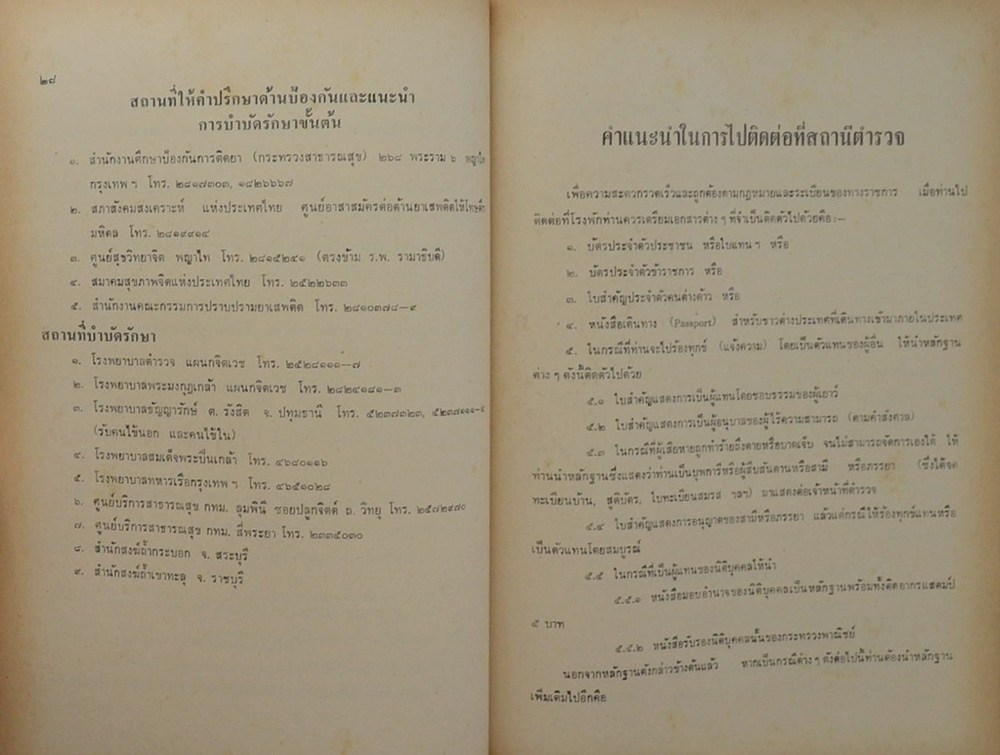 ๒๘
สถานที่ให้คำปรึกษาด้านป้องกันและแนะนำ
การบำบัดรักษาขั้นต้น
๑. สำนักงานศึกษาป้องกันการติดยา (กระทรวงสาธารณสุข) ๒๖๘ พระราม ๖ พญาไท
กรุงเทพ ฯ โทร. ๒๘๑๗๓๐๓, ๑๘๒๖๖๖๗
๒. สภาสังคมสงเคราะห์ แห่งประเทศไทย ศูนย์อาสาสมัครต่อต้านยาเสพติดให้โทษตึก
มหิดล โทร. ๒๘๑๙๙๑๔
๓. ศูนย์สุขวิทยาจิต พญาไท โทร. ๒๘๑๕๒๔๑ (ตรงข้าม ร.พ. รามาธิบดี)
๔. สมาคมสุขภาพจิตแห่งประเทศไทย โทร. ๒๕๒๒๖๓๓
๕. สำนักงานคณะกรรมการปราบปรามยาเสพติด โทร. ๒๘๑๐๓๗๘–๙
สถานที่บำบัดรักษา
๑. โรงพยาบาลตำรวจ แผนกจิตเวช โทร. ๒๕๒๘๑๑๑–๗
๒. โรงพยาบาลพระมงกุฎเกล้า แผนกจิตเวช โทร. ๒๘๒๔๑๘๑–๓
๓. โรงพยาบาลธัญญารักษ์ ต. รังสิต จ. ปทุมธานี โทร. ๕๒๓๗๓๒๓, ๕๒๓๗๑๑๑–๙
(รับคนไข้นอก และคนไข้ใน)
๔. โรงพยาบาลสมเด็จพระปิ่นเกล้า โทร. ๔๖๘๐๑๑๖
๕. โรงพยาบาลทหารเรือกรุงเทพ ฯ โทร. ๔๖๕๑๐๒๘
๖. ศูนย์บริการสาธารณสุข กทม. ลุมพินี ซอยปลูกจิตต์ ถ. วิทยุ โทร. ๒๕๗๒๙๗๐
๗. ศูนย์บริการสาธารณสุข กทม. สี่พระยา โทร. ๒๓๓๕๐๓๐
๘. สำนักสงฆ์ถ้ำกระบอก จ. สระบุรี
๙. สำนักสงฆ์ถ้ำเขาทะลุ จ. ราชบุรี
คำแนะนำในการไปติดต่อที่สถานีตำรวจ
เพื่อความสะดวกรวดเร็วและถูกต้องตามกฎหมายและระเบียบของทางราชการ เมื่อท่านไป
ติดต่อที่โรงพักท่านควรเตรียมเอกสารต่าง ๆ ที่จำเป็นติดตัวไปด้วยคือ:–
๑. บัตรประจำตัวประชาชน หรือใบแทน ฯ หรือ
๒. บัตรประจำตัวข้าราชการ หรือ
๓. ใบสำคัญประจำตัวคนต่างด้าว หรือ
๔. หนังสือเดินทาง (Passport) สำหรับชาวต่างประเทศที่เดินทางเข้ามาภายในประเทศ
๕. ในกรณีที่ท่านจะไปร้องทุกข์ (แจ้งความ) โดยเป็นตัวแทนของผู้อื่น ให้นำหลักฐาน
ต่าง ๆ ดังนี้ติดตัวไปด้วย
๕.๑ ใบสำคัญแสดงการเป็นผู้แทนโดยชอบธรรมของผู้เยาว์
๕.๒ ใบสำคัญแสดงการเป็นผู้อนุบาลของผู้ไร้ความสามารถ (ตามคำสั่งศาล)
๕.๓ ในกรณีที่ผู้เสียหายถูกทำร้ายถึงตายหรือบาดเจ็บ จนไม่สามารถจัดการเองได้ ให้
ท่านนำหลักฐานซึ่งแสดงว่าท่านเป็นบุพการีหรือผู้สืบสันดานหรือสามี หรือภรรยา (ซึ่งได้จด
ทะเบียนบ้าน, สูติบัตร, ใบทะเบียนสมรส ฯลฯ) มาแสดงต่อเจ้าหน้าที่ตำรวจ
๕.๔ ใบสำคัญแสดงการอนุญาตของสามีหรือภรรยา แล้วแต่กรณีให้ร้องทุกข์แทนหรือ
เป็นตัวแทนโดยสมบูรณ์
๕.๕ ในกรณีที่เป็นผู้แทนของนิติบุคคลให้นำ
๕.๕.๑ หนังสือมอบอำนาจของนิติบุคคลเป็นหลักฐานพร้อมทั้งติดอากรแสตมป์
๕ บาท
๕.๕.๒ หนังสือรับรองนิติบุคคลนั้นของกระทรวงพาณิชย์
นอกจากหลักฐานดังกล่าวข้างต้นแล้ว หากเป็นกรณีต่าง ๆ ดังต่อไปนี้ท่านต้องนำหลักฐาน
เพิ่มเติมไปอีกคือ